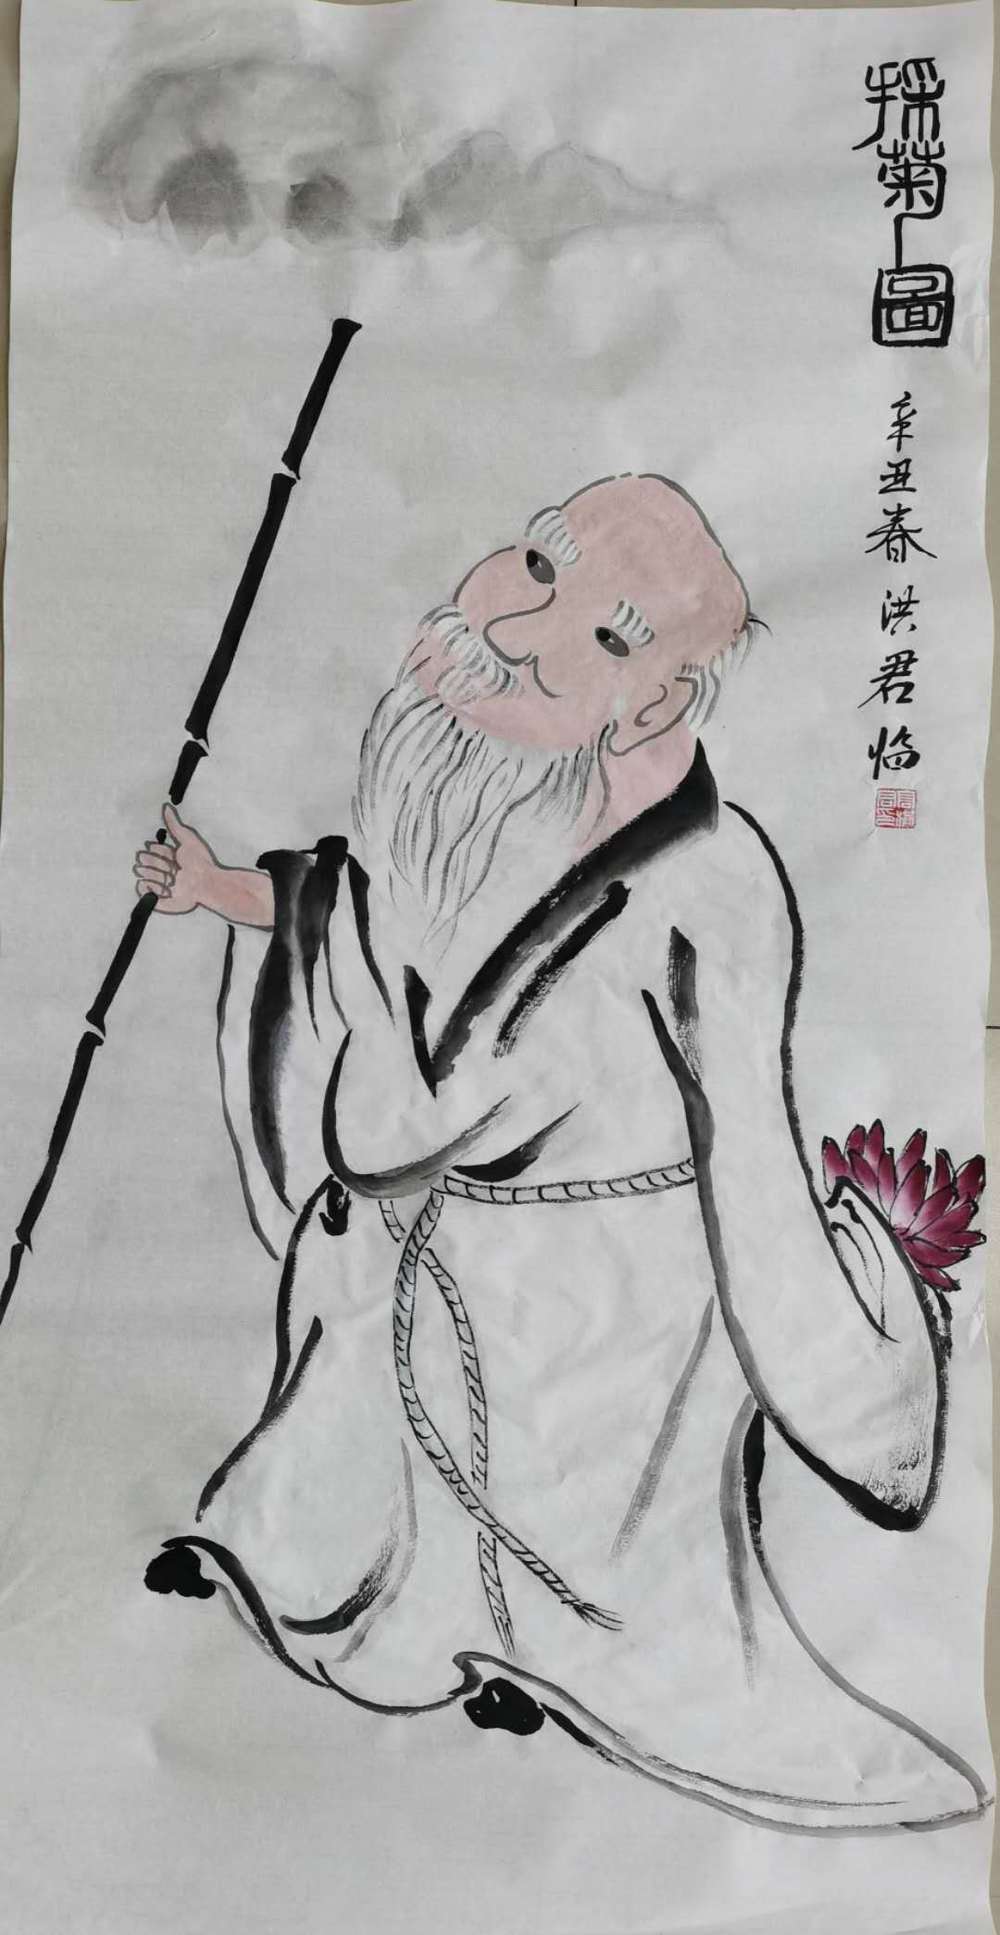 採菊圖
辛丑春洪君临